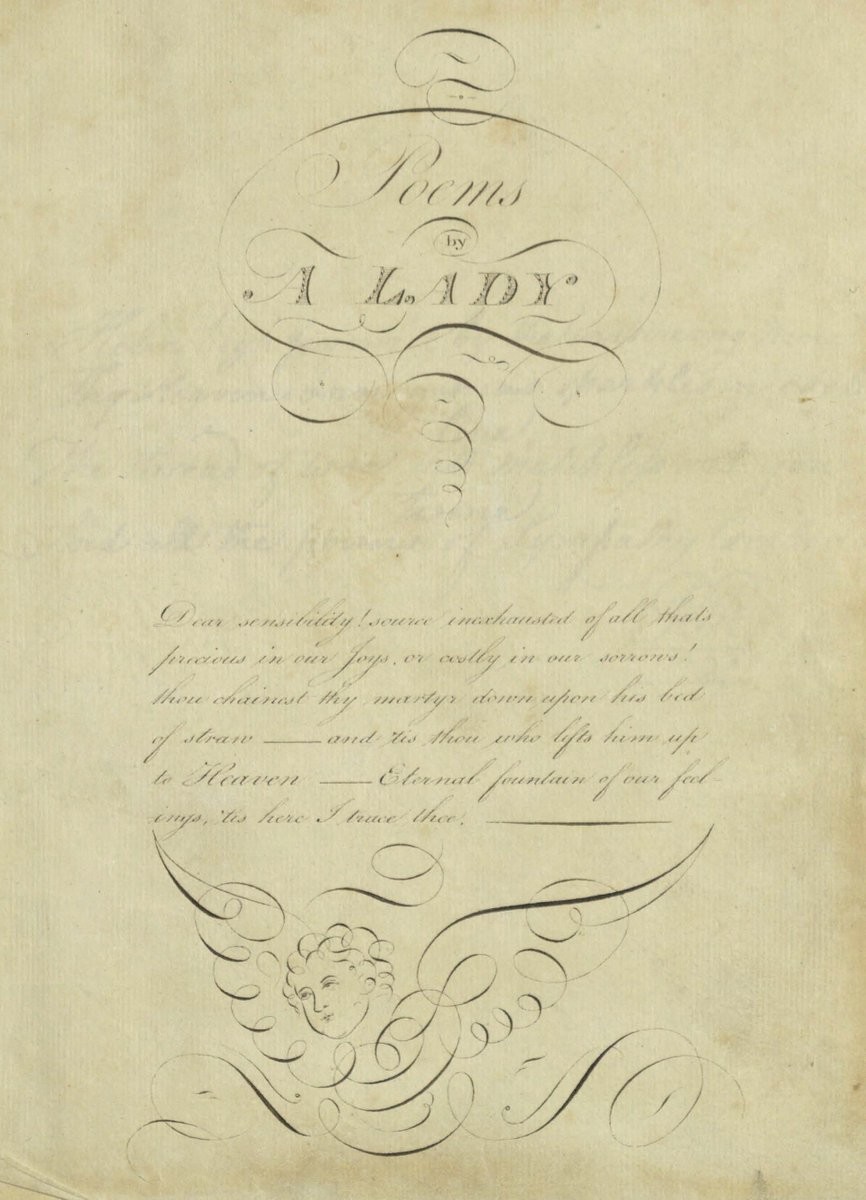 Poems
by
A LADY
Dear sensibility! source inexhausted of all thats
precious in our Joys, or costly in our sorrows!
thou chainest thy martyr down upon his bed
of straw — and 'tis thou who lifts him up
to Heaven — Eternal fountain of our feel-
ings, 'tis here I trace thee.